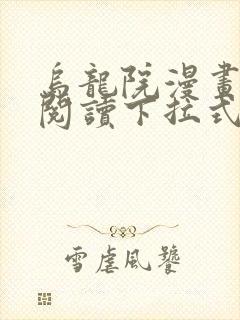 烏龍院漫畫
閱讀下拉式
雪虐風饕